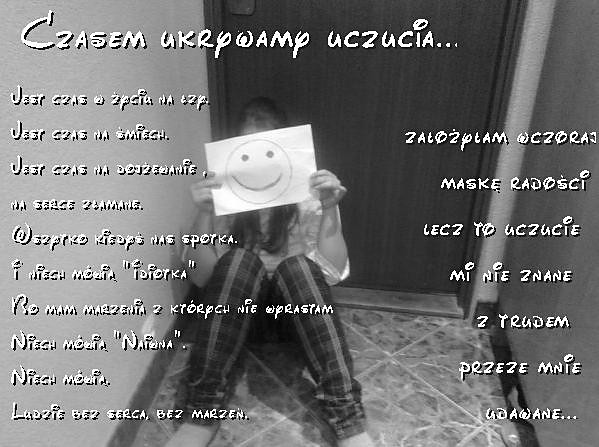 Czasem ukrywamy uczucia...
Jest czas w życiu na łzy.
Jest czas na śmiech.
Jest czas na dojżewanie,
na serce złamane.
Wszytko kiedyś nas spotka.
i niech mówią "idiotka"
Bo mam marzenia z których nie wyrastam
Niech mówią "Naiwna".
Niech mówią.
Ludzie bez serca, bez marzeń.
założyłam wczoraj
maskę radości
lecz to uczucie
mi nie znane
z trudem
przeze mnie
udawane...